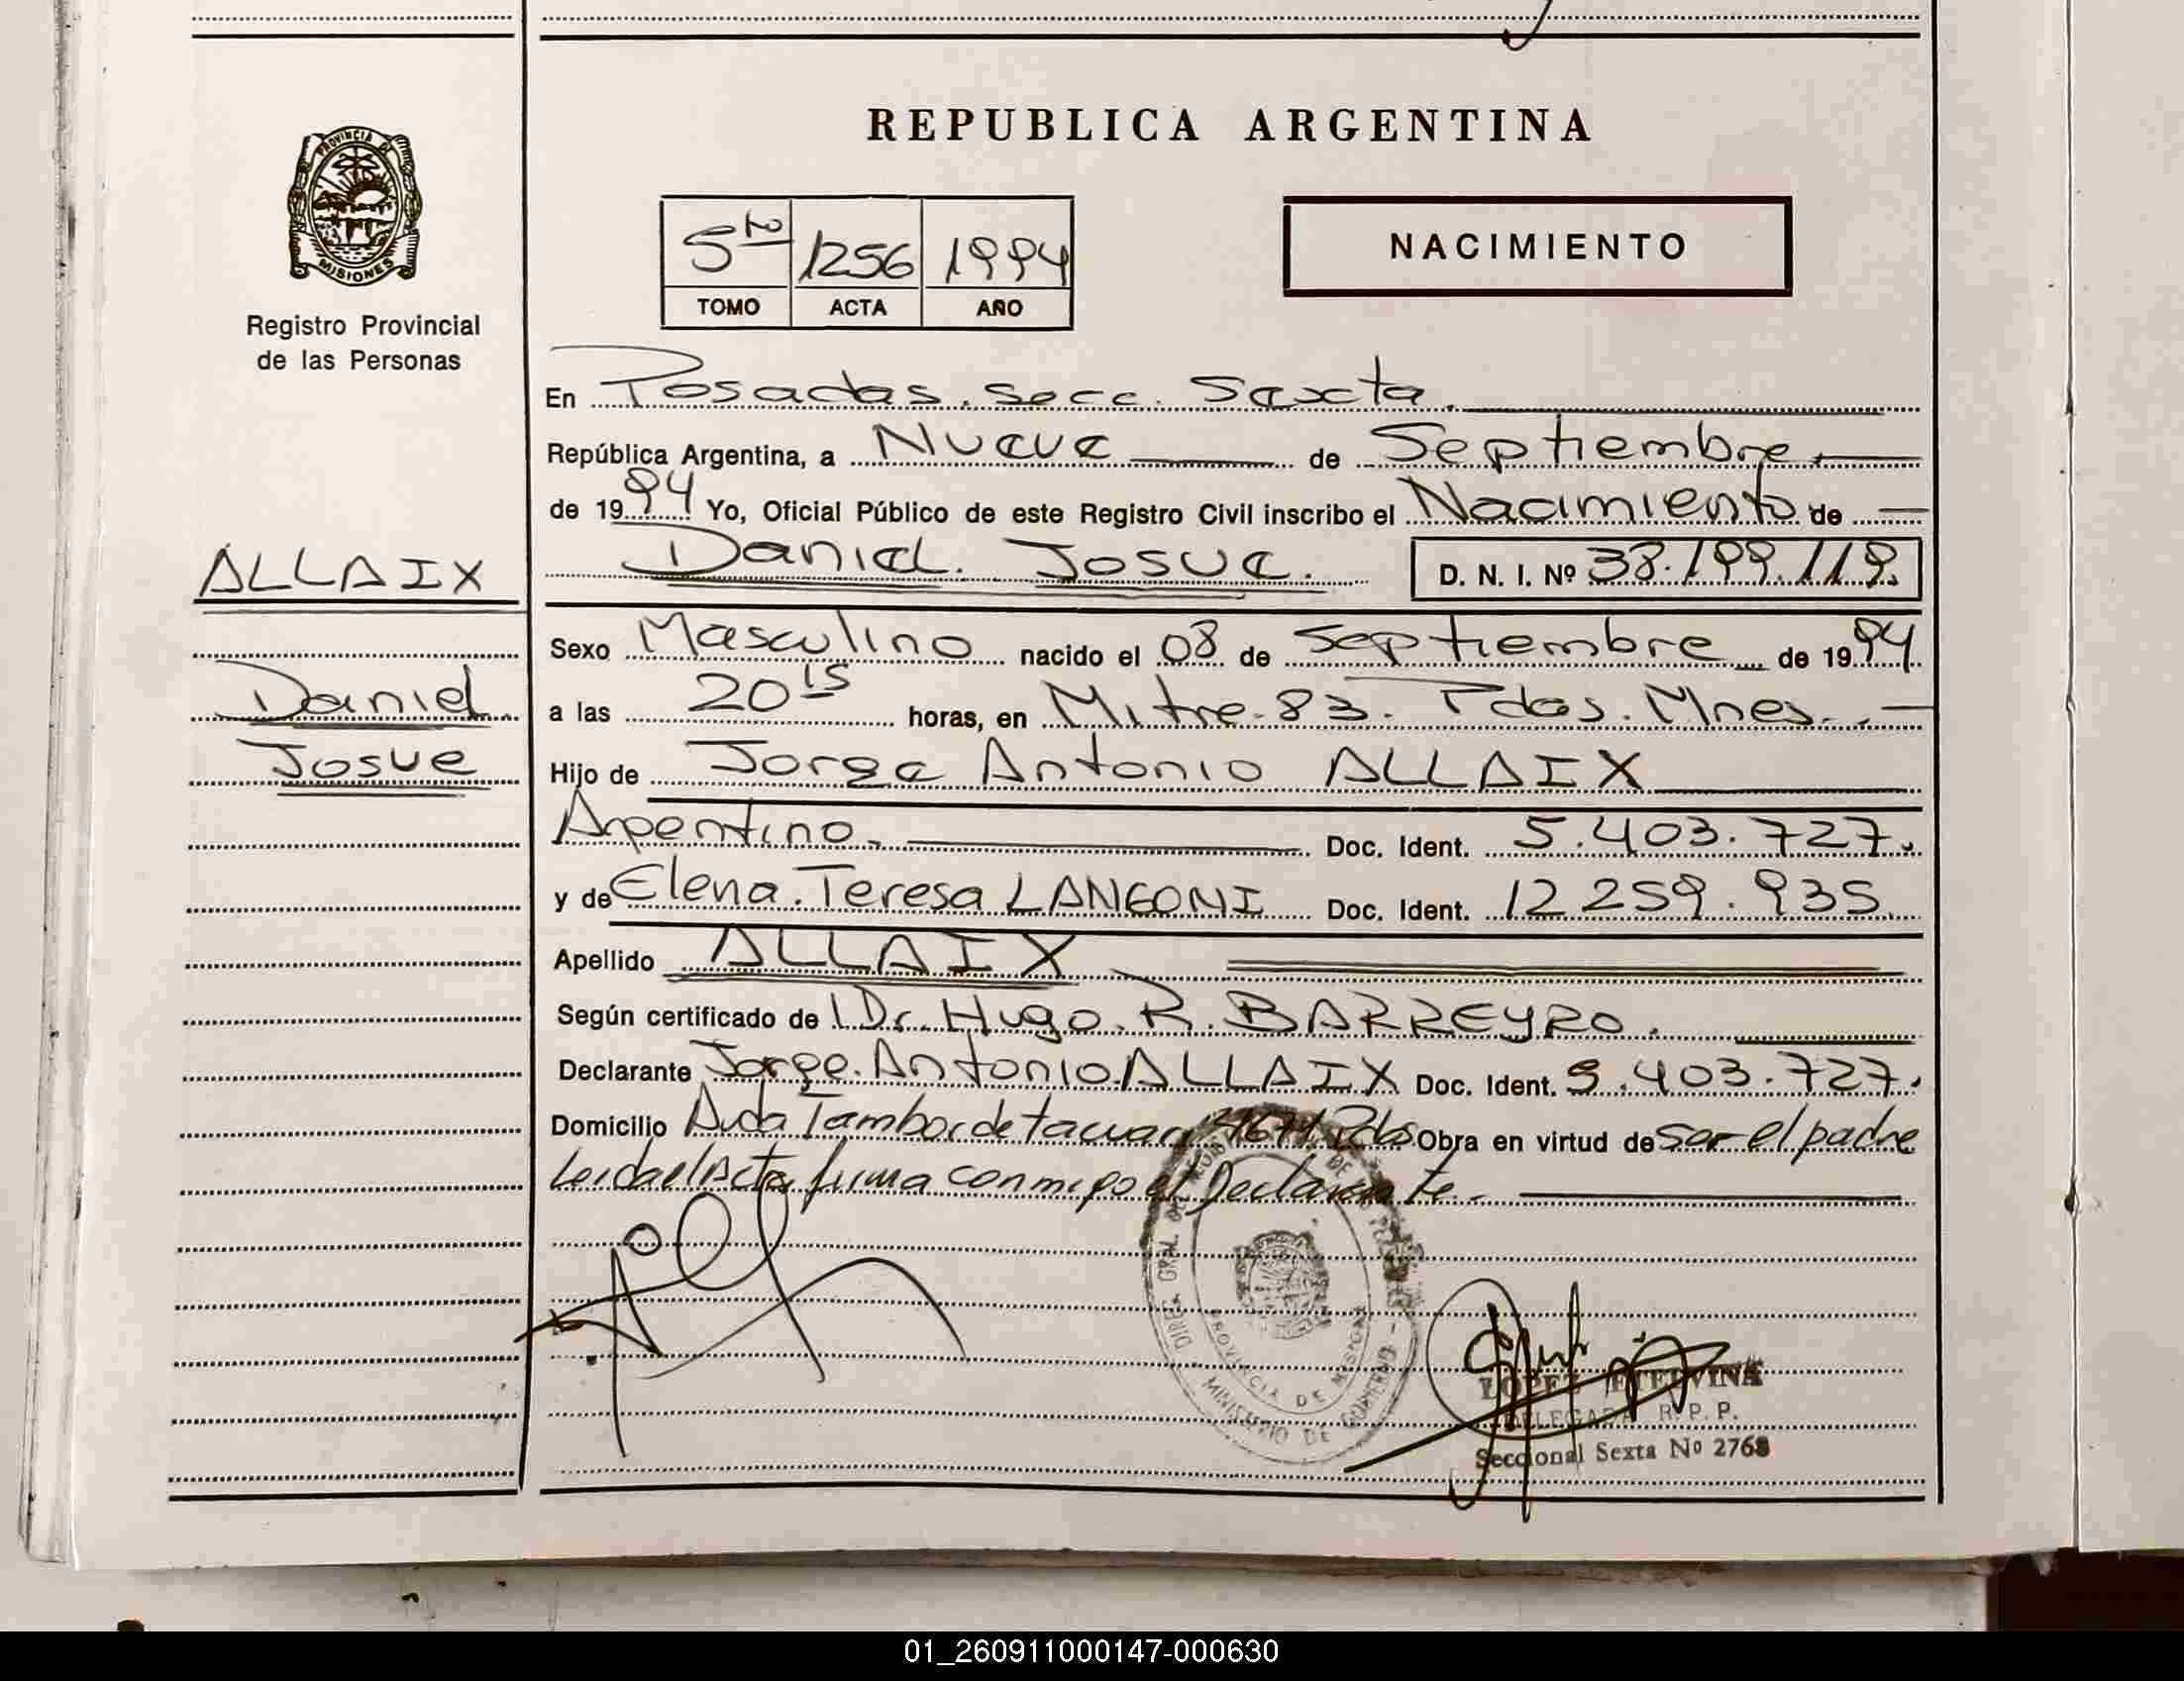 PROVINCIA DE
MISIONES
Registro Provincial
de las Personas
ALLAIX
Daniel
Josue
REPUBLICA ARGENTINA
5to 1256 1994
TOMO ACTA AÑO
NACIMIENTO
En Posadas. Secc. Sexta.
República Argentina, a Nueve de Septiembre
de 1994 Yo, Oficial Público de este Registro Civil inscribo el Nacimiento de
Daniel. Josue. D. N. I. Nº 38.199.119.
Sexo Masculino nacido el 08 de Septiembre de 1994
a las 20 15 horas, en Mitre 83. Pdas. Mnes.
Hijo de Jorge Antonio ALLAIX
Argentino. Doc. Ident. 5.403.727.
y de Elena Teresa LANGONI Doc. Ident. 12 259.935
Apellido ALLAIX
Según certificado de Dr. Hugo. R. BARREYRO.
Declarante Jorge Antonio ALLAIX Doc. Ident. 5.403.727.
Domicilio Avda Tambor de tacuari Pdas Obra en virtud de ser el padre
Leida el Acta firma conmigo el Declarante.
DIREC. GRAL DEL
PROVINCIA DE MISIONES
MINISTERIO DE GOBIERNO
LOPEZ ETELVINA
DELEGADA R. P. P.
Seccional Sexta Nº 2768
01_260911000147-000630